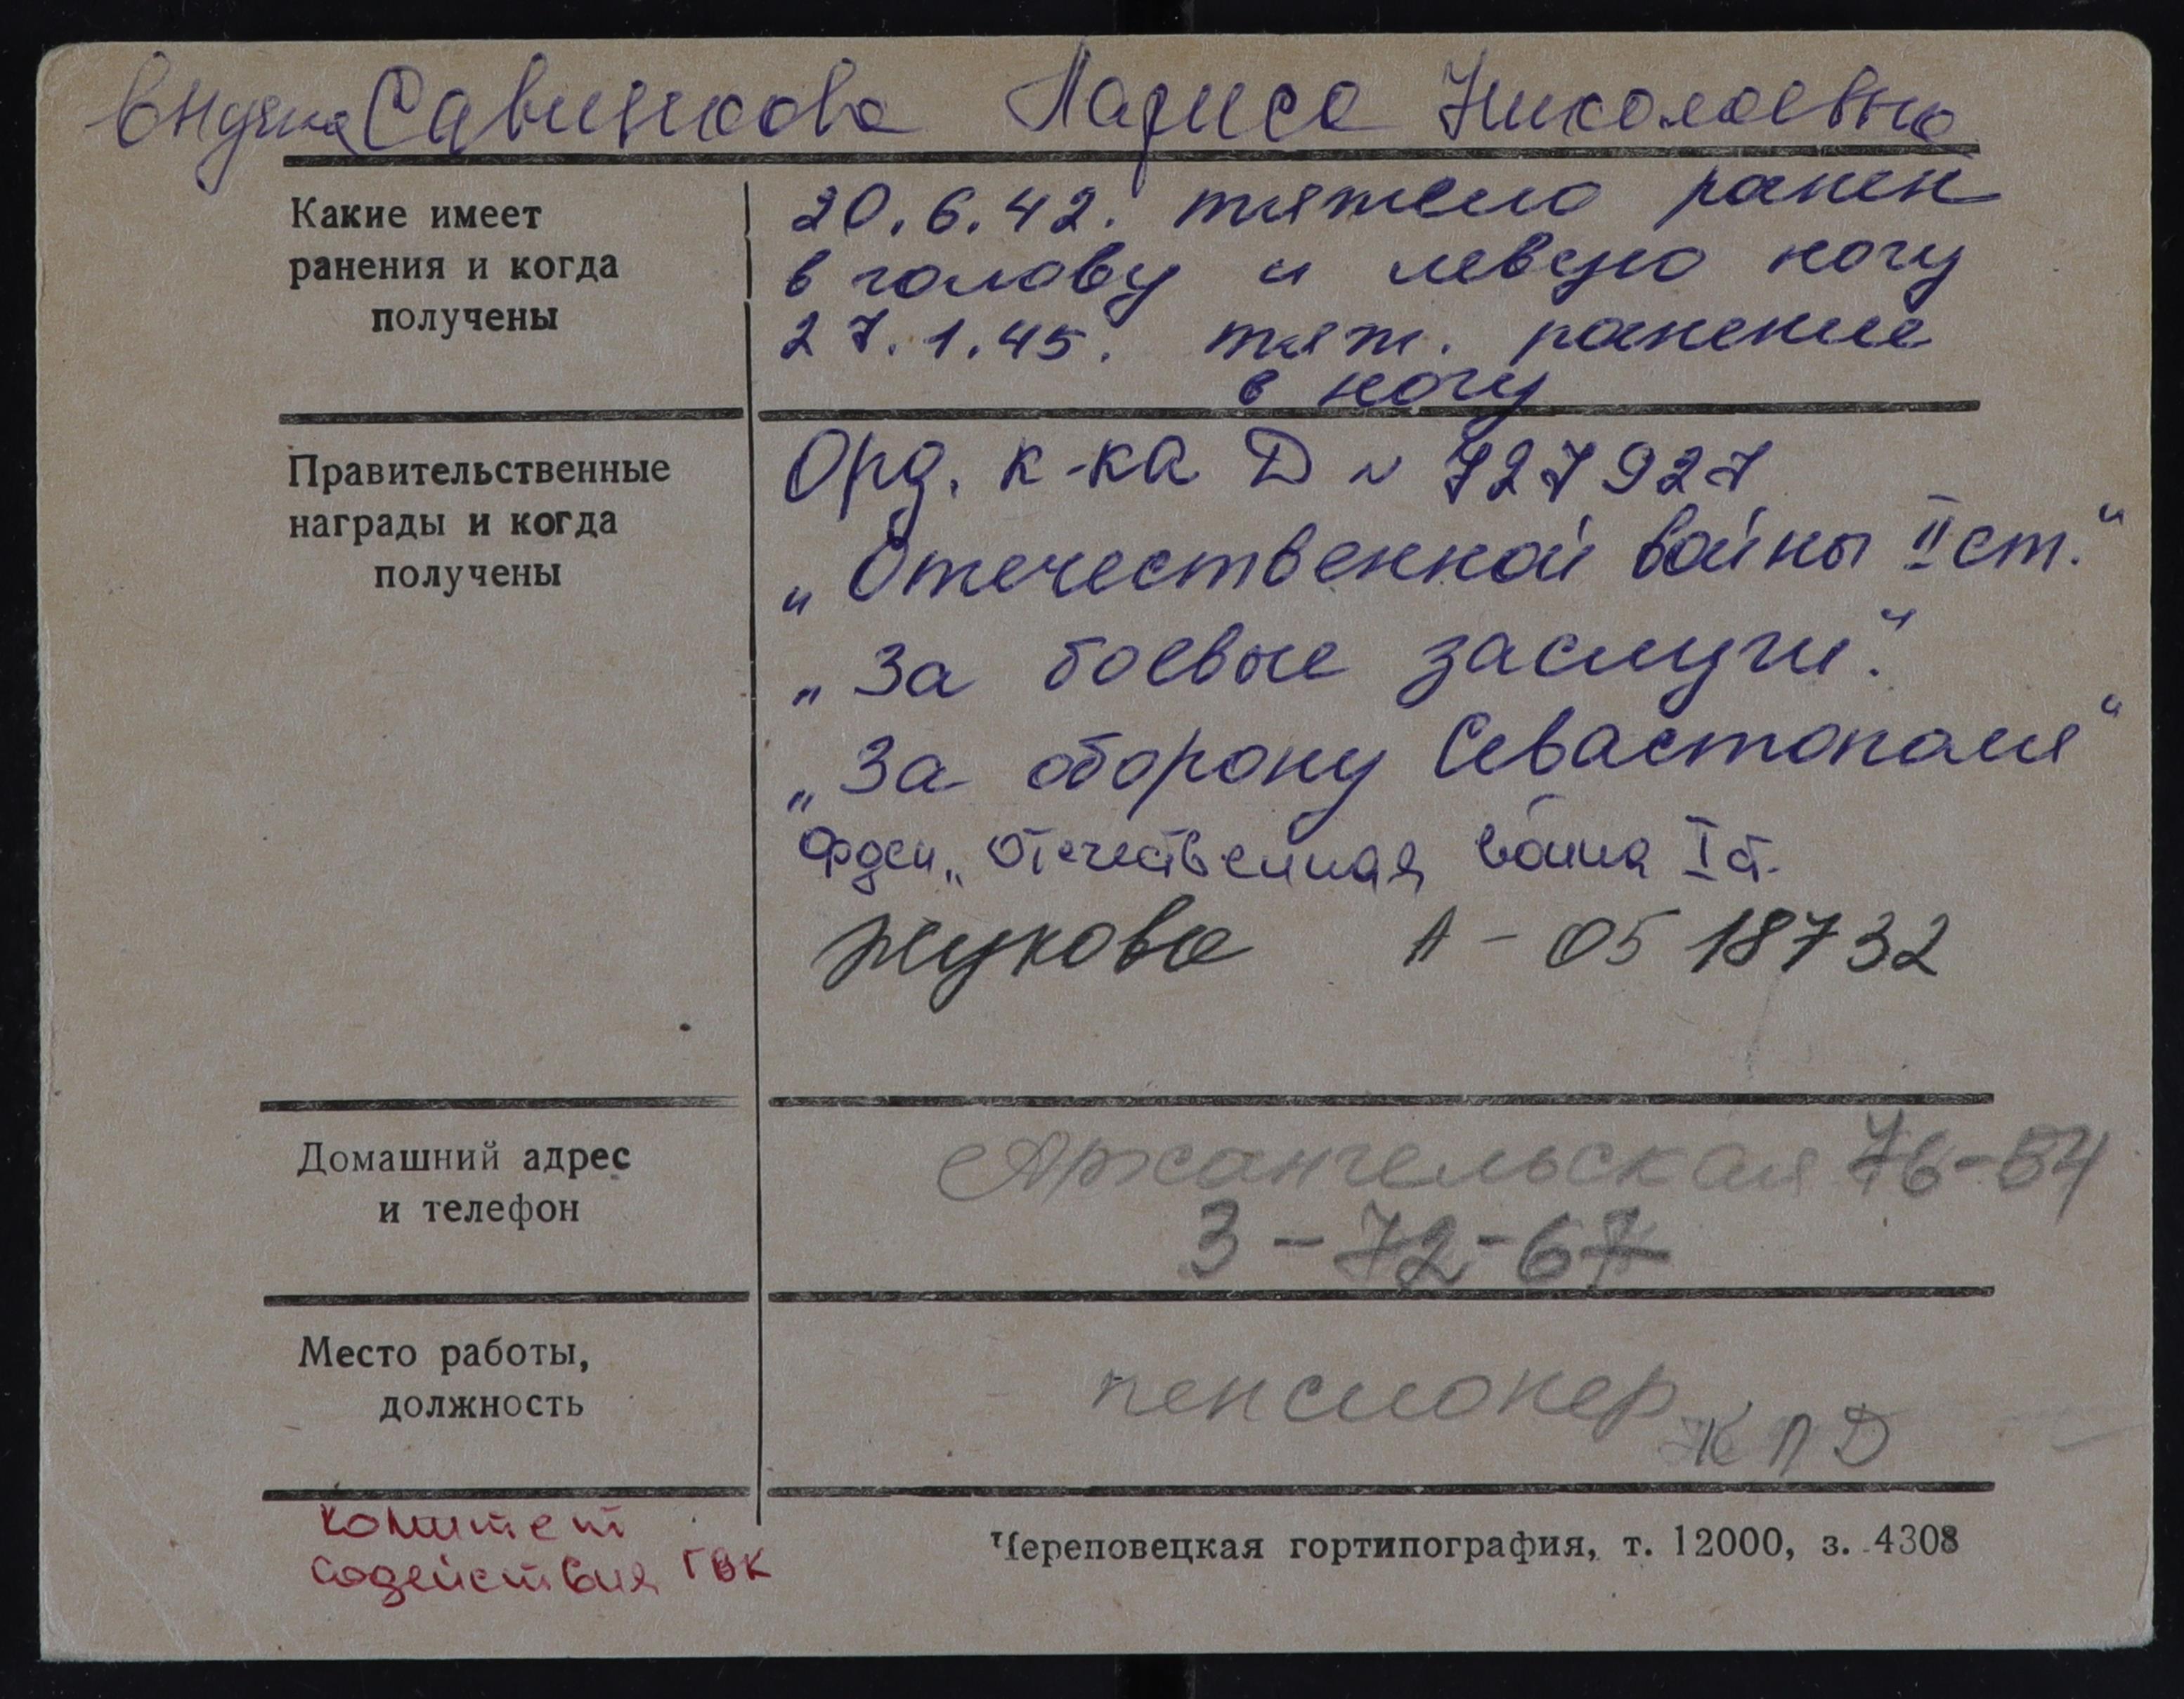 внучка Савинкова Лариса Николаевна
Какие имеет
ранения и когда
получены
20.6.42. тяжело ранен
в голову и левую ногу
27.1.45. тяж. ранение
в ногу
Правительственные
награды и когда
получены
Орд. к-ка Д № 727927
„Отечественной войны II ст."
„За боевые заслуги".
„За оборону Севастополя"
Орден „Отечественная война I ст.
Жукова А - 0518732
Домашний адрес
и телефон
Архангельская 76-54
3-72-67
Место работы,
должность
пенсионер
КПД
Комитет
содействия ГВК
Череповецкая гортипография, т. 12000, з. 4308